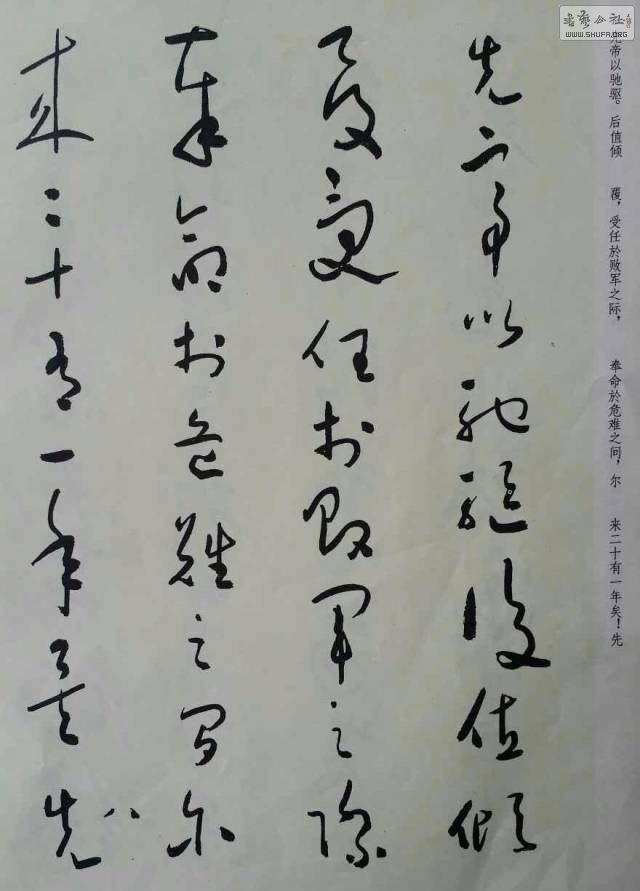 先帝以驰驱后值倾
覆受任於败军之际
奉命於危难之间尔
来二十有一年矣先
先帝以驰驱。后值倾 覆，受任於败军之际， 奉命於危难之间，尔 来二十有一年矣！先
书艺公社
WWW.SHUFA.ORG